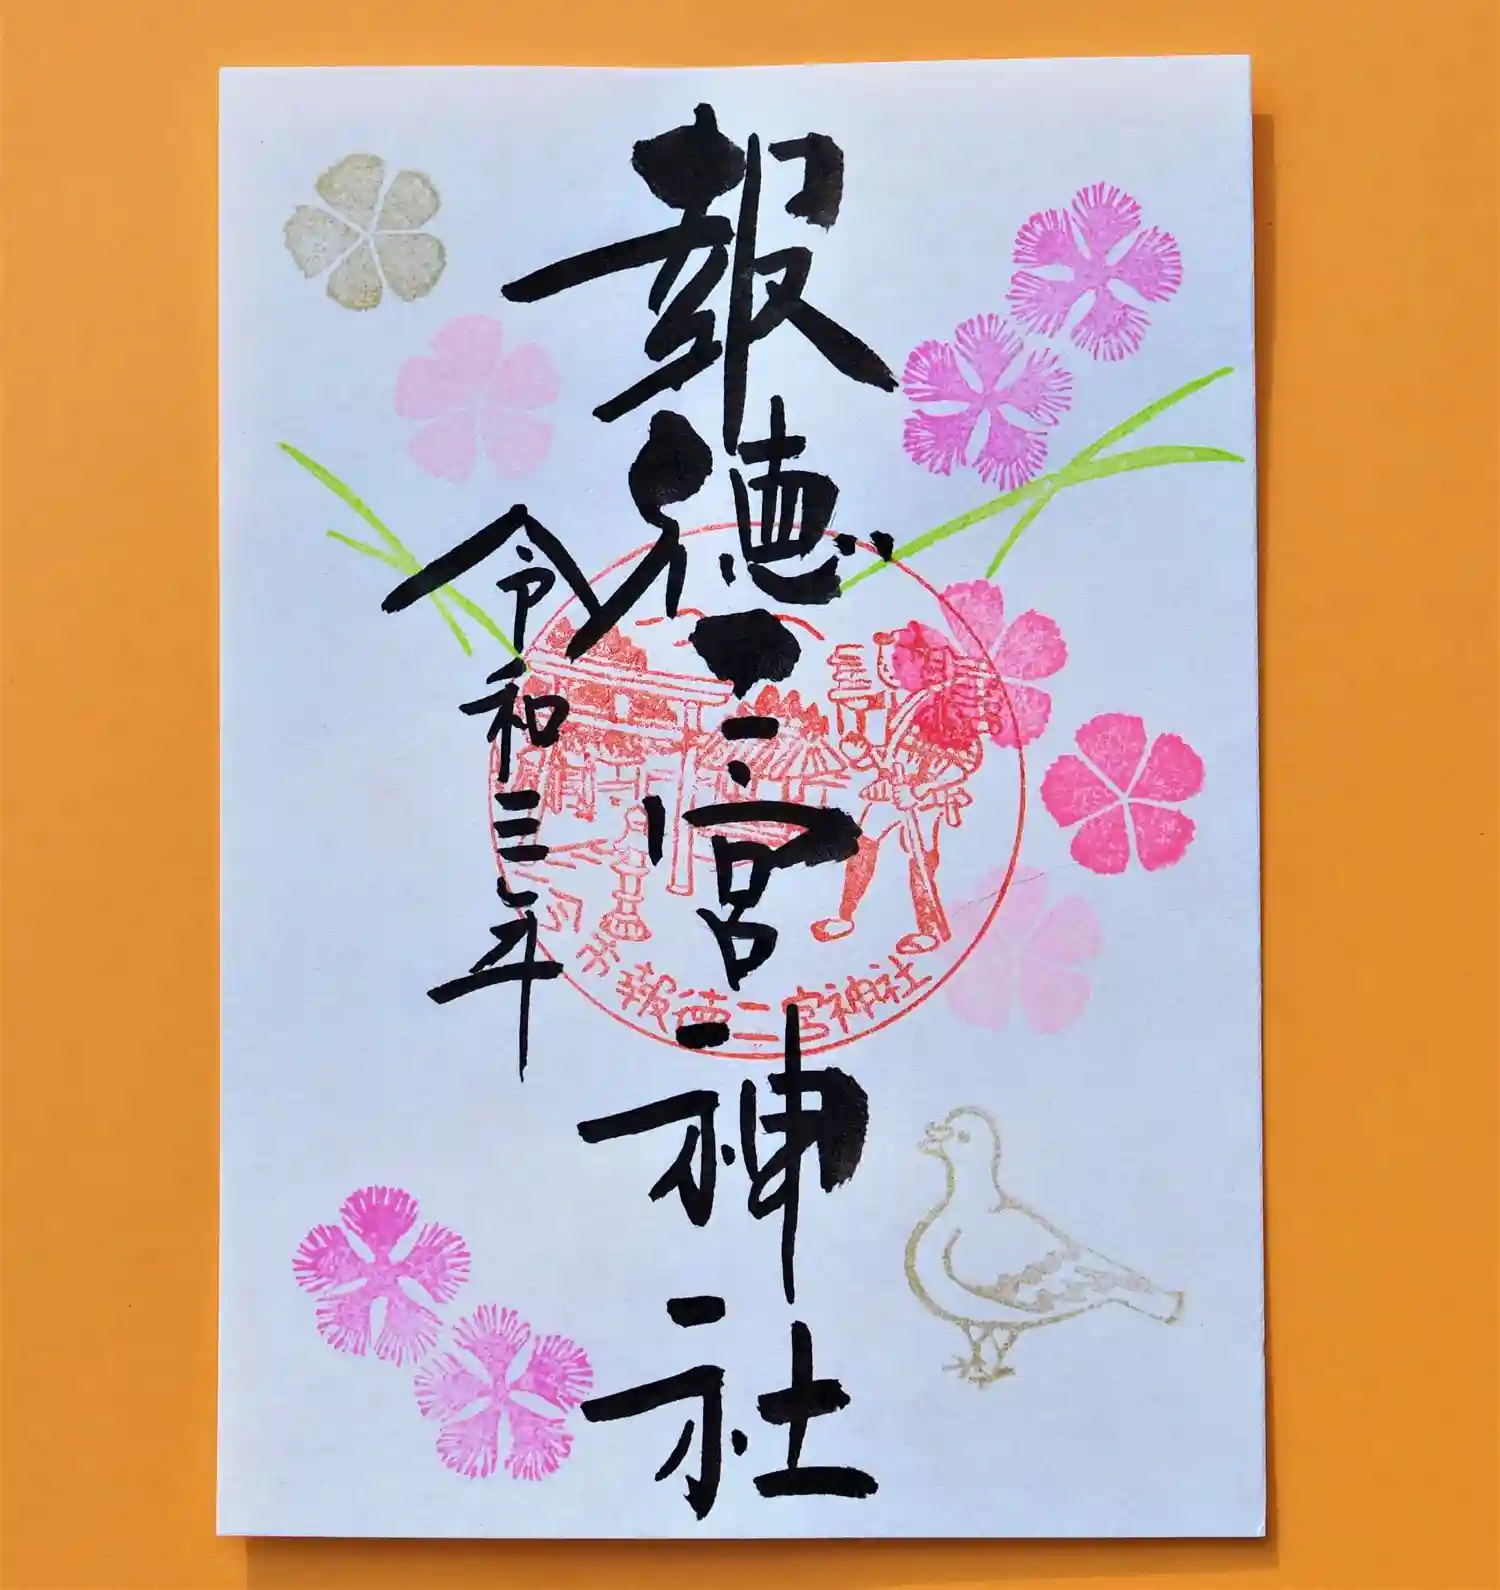 報徳二宮神社
令和三年
報徳二宮神社